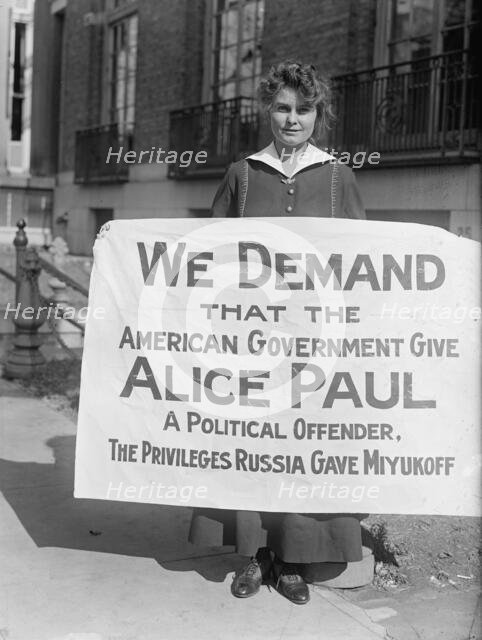 WE DEMAND
THAT THE
AMERICAN GOVERNMENT GIVE
ALICE PAUL
A POLITICAL OFFENDER,
THE PRIVILEGES RUSSIA GAVE MIYUKOFF
Heritage Heritage
Heritage Heritage Heritage
Heritage Heritage
Heritage Heritage Heritage